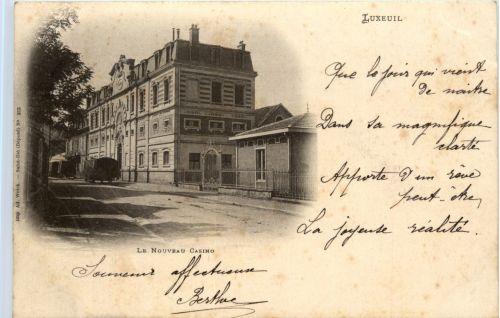 LUXEUIL
Que le jour qui vient
de naître
Dans sa magnifique
clarté
Apporte d'un rêve
peut-être
La joyeuse réalité.
LE NOUVEAU CASINO
Souvenir affectueux
Berthe